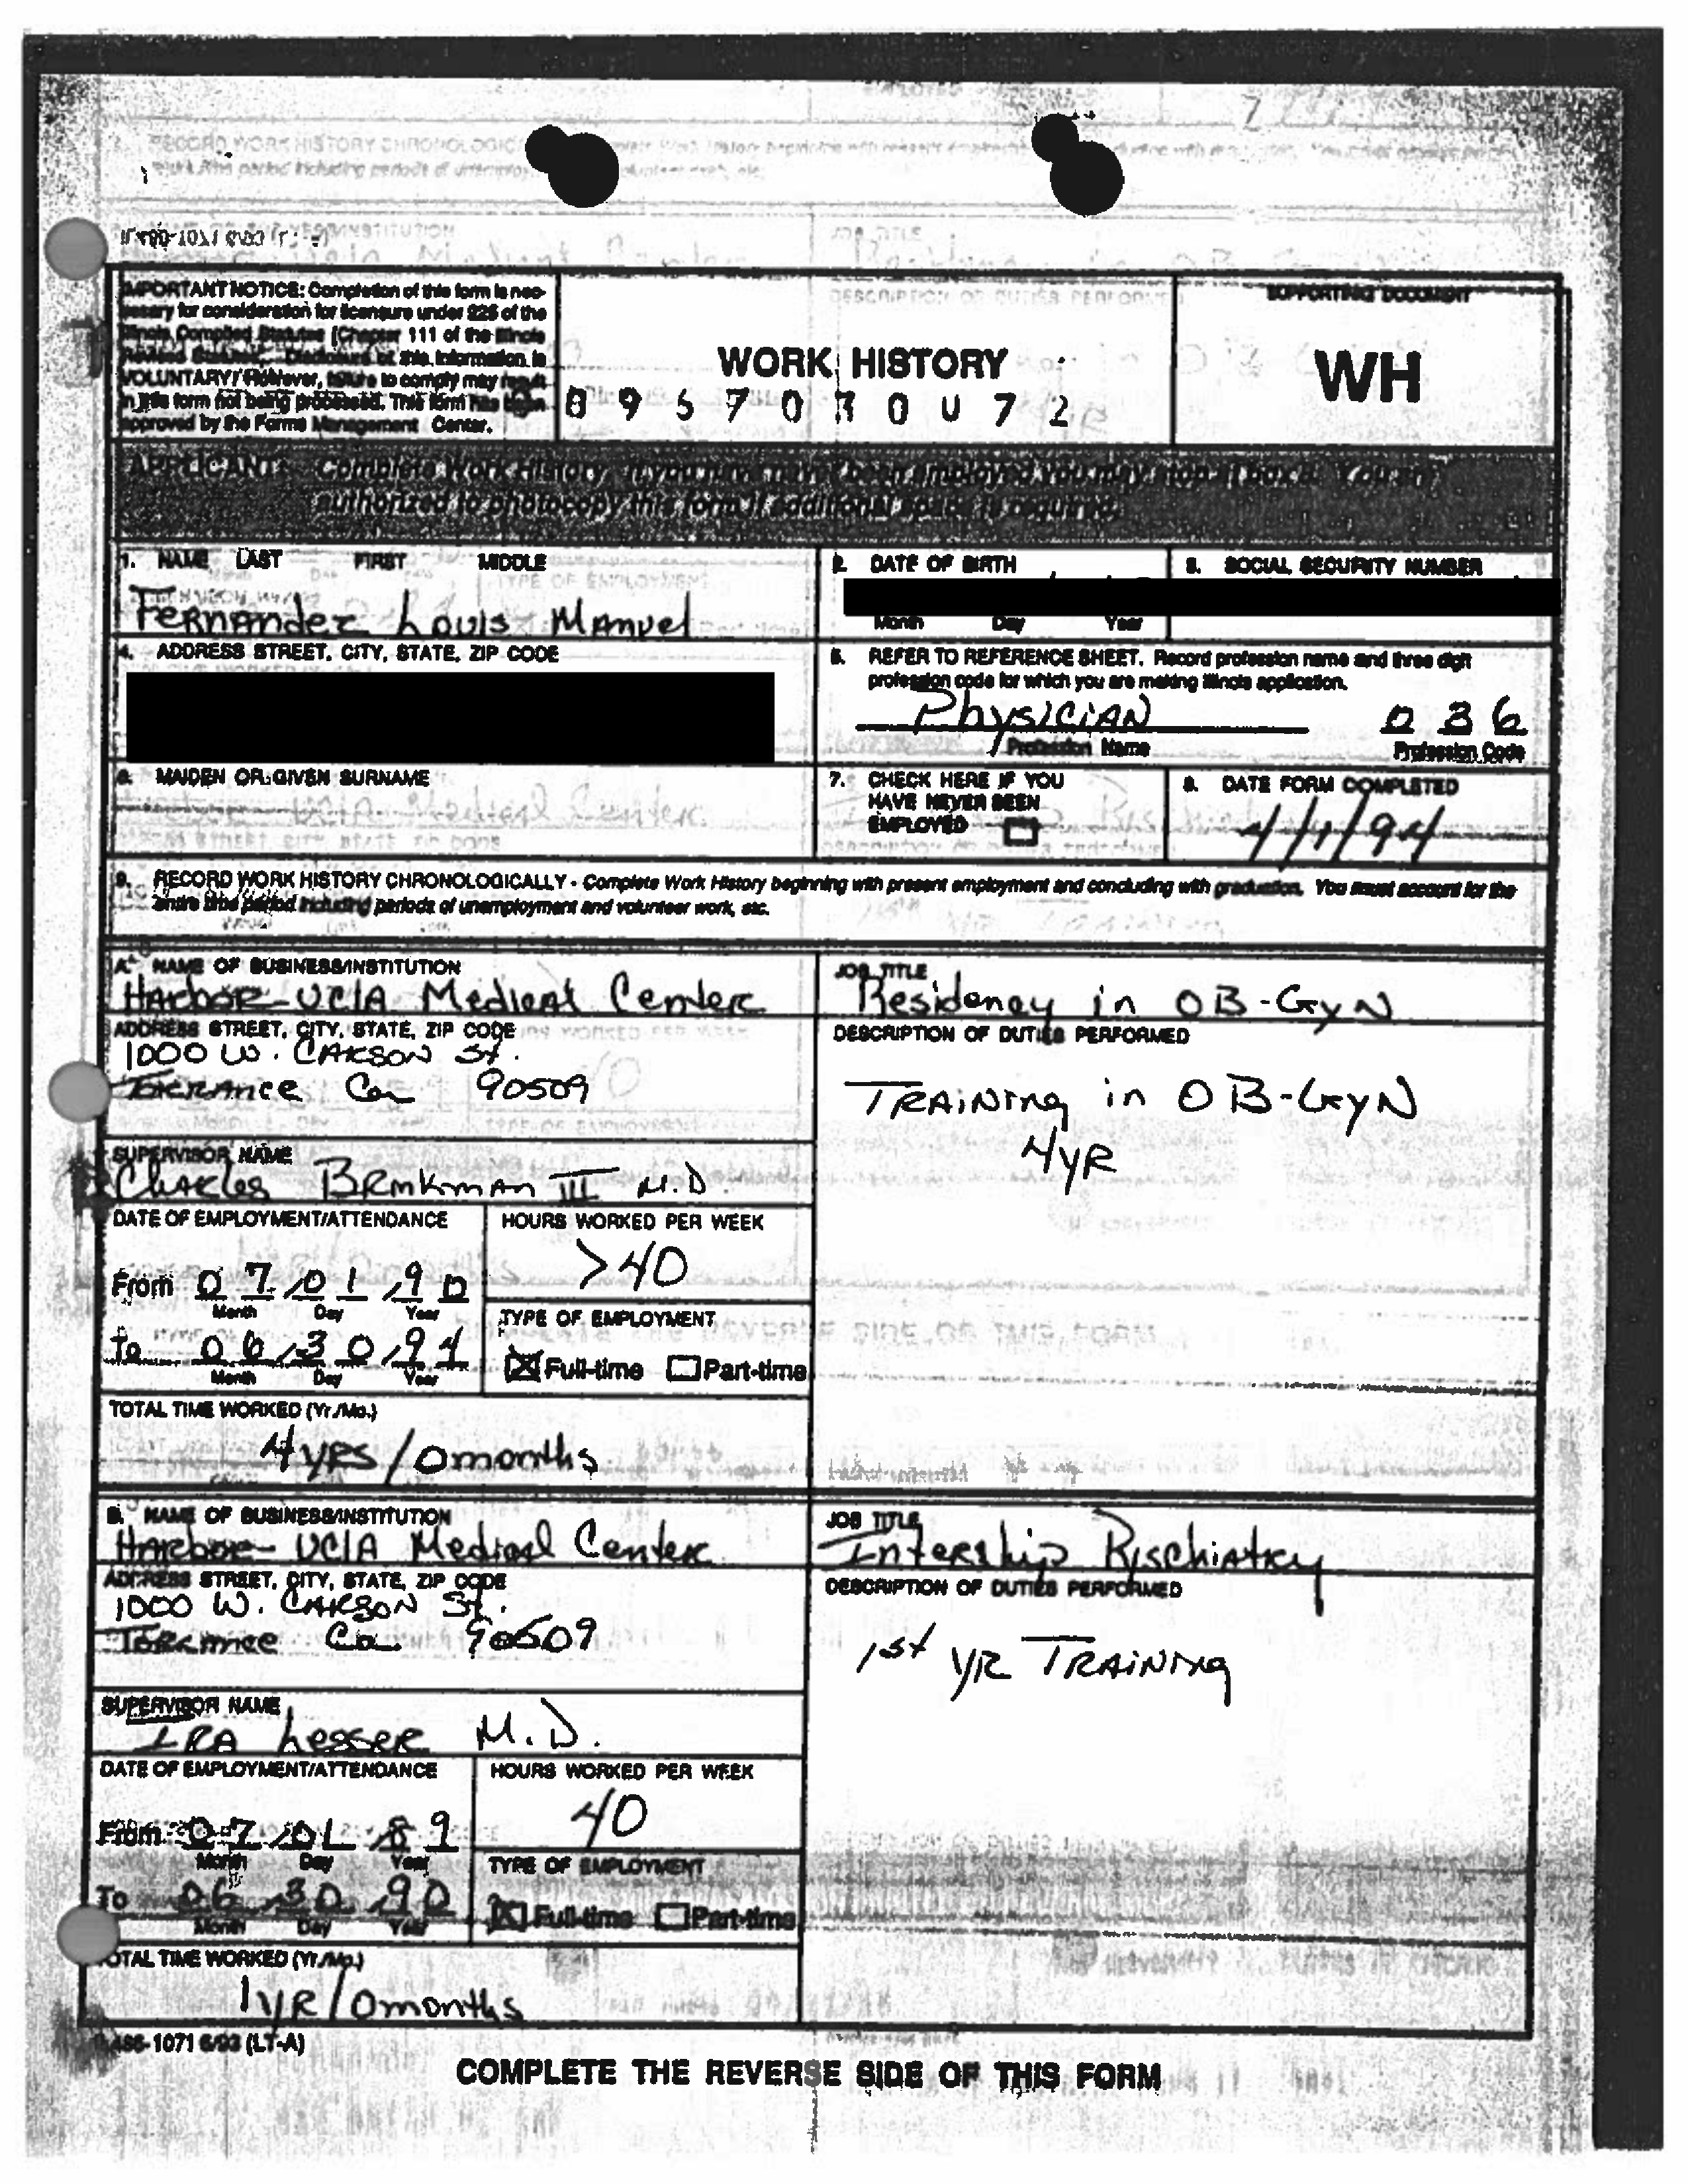 IMPORTANT NOTICE: Completion of this form is nec-
essary for consideration for licensure under 225 of the
Illinois Compiled Statutes (Chapter 111 of the Illinois
Revised Statutes). Disclosure of this information is
VOLUNTARY. However, failure to comply may result
in this form not being processed. This form has been
approved by the Forms Management Center.
WORK HISTORY
SUPPORTING DOCUMENT
WH
APPLICANT: Complete Work History. If you have never been employed you may stop at box 8. You are
authorized to photocopy this form if additional space is required.
1. NAME LAST FIRST MIDDLE
Fernandez Louis Manuel
2. DATE OF BIRTH
Month Day Year
3. SOCIAL SECURITY NUMBER
4. ADDRESS STREET, CITY, STATE, ZIP CODE
5. REFER TO REFERENCE SHEET. Record profession name and three digit
profession code for which you are making Illinois application.
Physician 036
Profession Name Profession Code
6. MAIDEN OR GIVEN SURNAME
7. CHECK HERE IF YOU
HAVE NEVER BEEN
EMPLOYED
8. DATE FORM COMPLETED
4/1/94
9. RECORD WORK HISTORY CHRONOLOGICALLY - Complete Work History beginning with present employment and concluding with graduation. You must account for the
entire time period including periods of unemployment and volunteer work, etc.
A. NAME OF BUSINESS/INSTITUTION
Harbor-UCLA Medical Center
JOB TITLE
Residency in OB-GYN
ADDRESS STREET, CITY, STATE, ZIP CODE
1000 W. Carson St.
Torrance Ca 90509
DESCRIPTION OF DUTIES PERFORMED
Training in OB-GYN
4yR
SUPERVISOR NAME
Charles Brinkman III M.D.
DATE OF EMPLOYMENT/ATTENDANCE
From 07/01/90
Month Day Year
To 06/30/94
Month Day Year
HOURS WORKED PER WEEK
>40
TYPE OF EMPLOYMENT
Full-time Part-time
TOTAL TIME WORKED (Yr./Mo.)
4 yrs/0months
B. NAME OF BUSINESS/INSTITUTION
Harbor-UCLA Medical Center
JOB TITLE
Intership Pyschiatry
ADDRESS STREET, CITY, STATE, ZIP CODE
1000 W. Carson St.
Torrance Ca 90509
DESCRIPTION OF DUTIES PERFORMED
1st yR Training
SUPERVISOR NAME
IRA Lesser M.D.
DATE OF EMPLOYMENT/ATTENDANCE
From 07/01/89
Month Day Year
To 06/30/90
Month Day Year
HOURS WORKED PER WEEK
40
TYPE OF EMPLOYMENT
Full-time Part-time
TOTAL TIME WORKED (Yr./Mo.)
1yR/0months
486-1071 6/93 (LT-A)
COMPLETE THE REVERSE SIDE OF THIS FORM